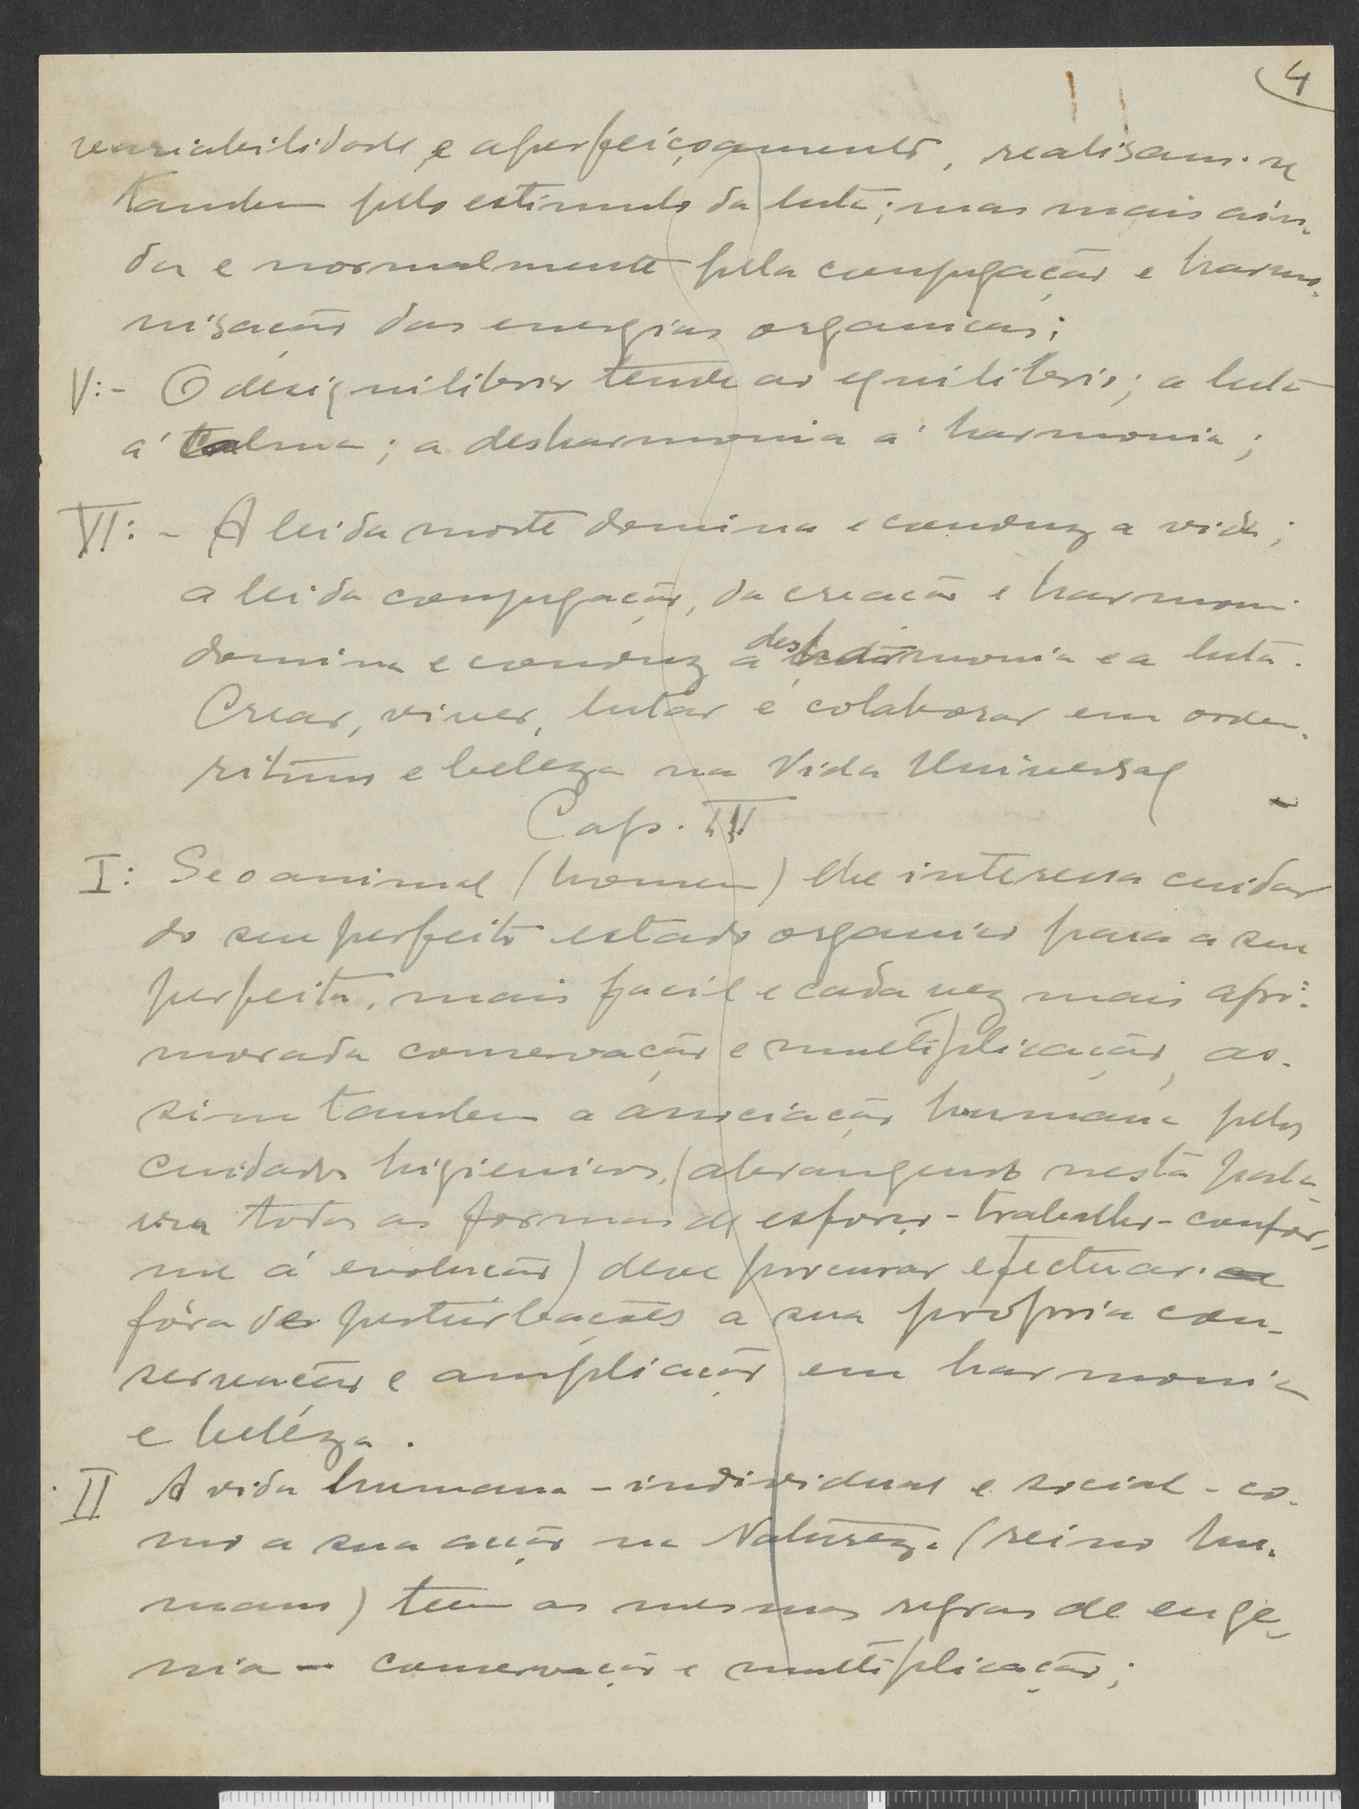 4
variabilidade e aperfeiçoamento, realisam-se
tambem pelo estimulo da luta; mas mais ain-
da e normalmente pela conjugação e harmo-
nisação das energias organicas;
V:- O desiquilibrio tende ao equilibrio; a luta
á calma; a desharmonia á harmonia;
VI:- A lei da morte domina e conduz a vida;
a lei da conjugação, da creação e harmoni
domina e conduz a desharmonia e a luta.
Crear, viver, lutar é colaborar em ordem.
ritmo e beleza na Vida Universal
Cap. III
I: Se o animal (homem) lhe interessa cuidar
do seu perfeito estado organico para a sua
perfeita, mais facil e cada vez mais apri-
morada conservação e multiplicação, as-
sim tambem a associação humana pelos
cuidados higienicos, (abrangendo nesta pala-
vra todas as formas de esforço-trabalho-confor-
me á evolução) deve procurar efectuar
fóra de perturbações a sua própria con-
servação e ampliação em harmonia
e beléza.
II A vida humana - individual e social - co-
mo a sua acção na Natureza (reino hu-
mano) tem as mesmas regras de euge-
nia - conservação e multiplicação;